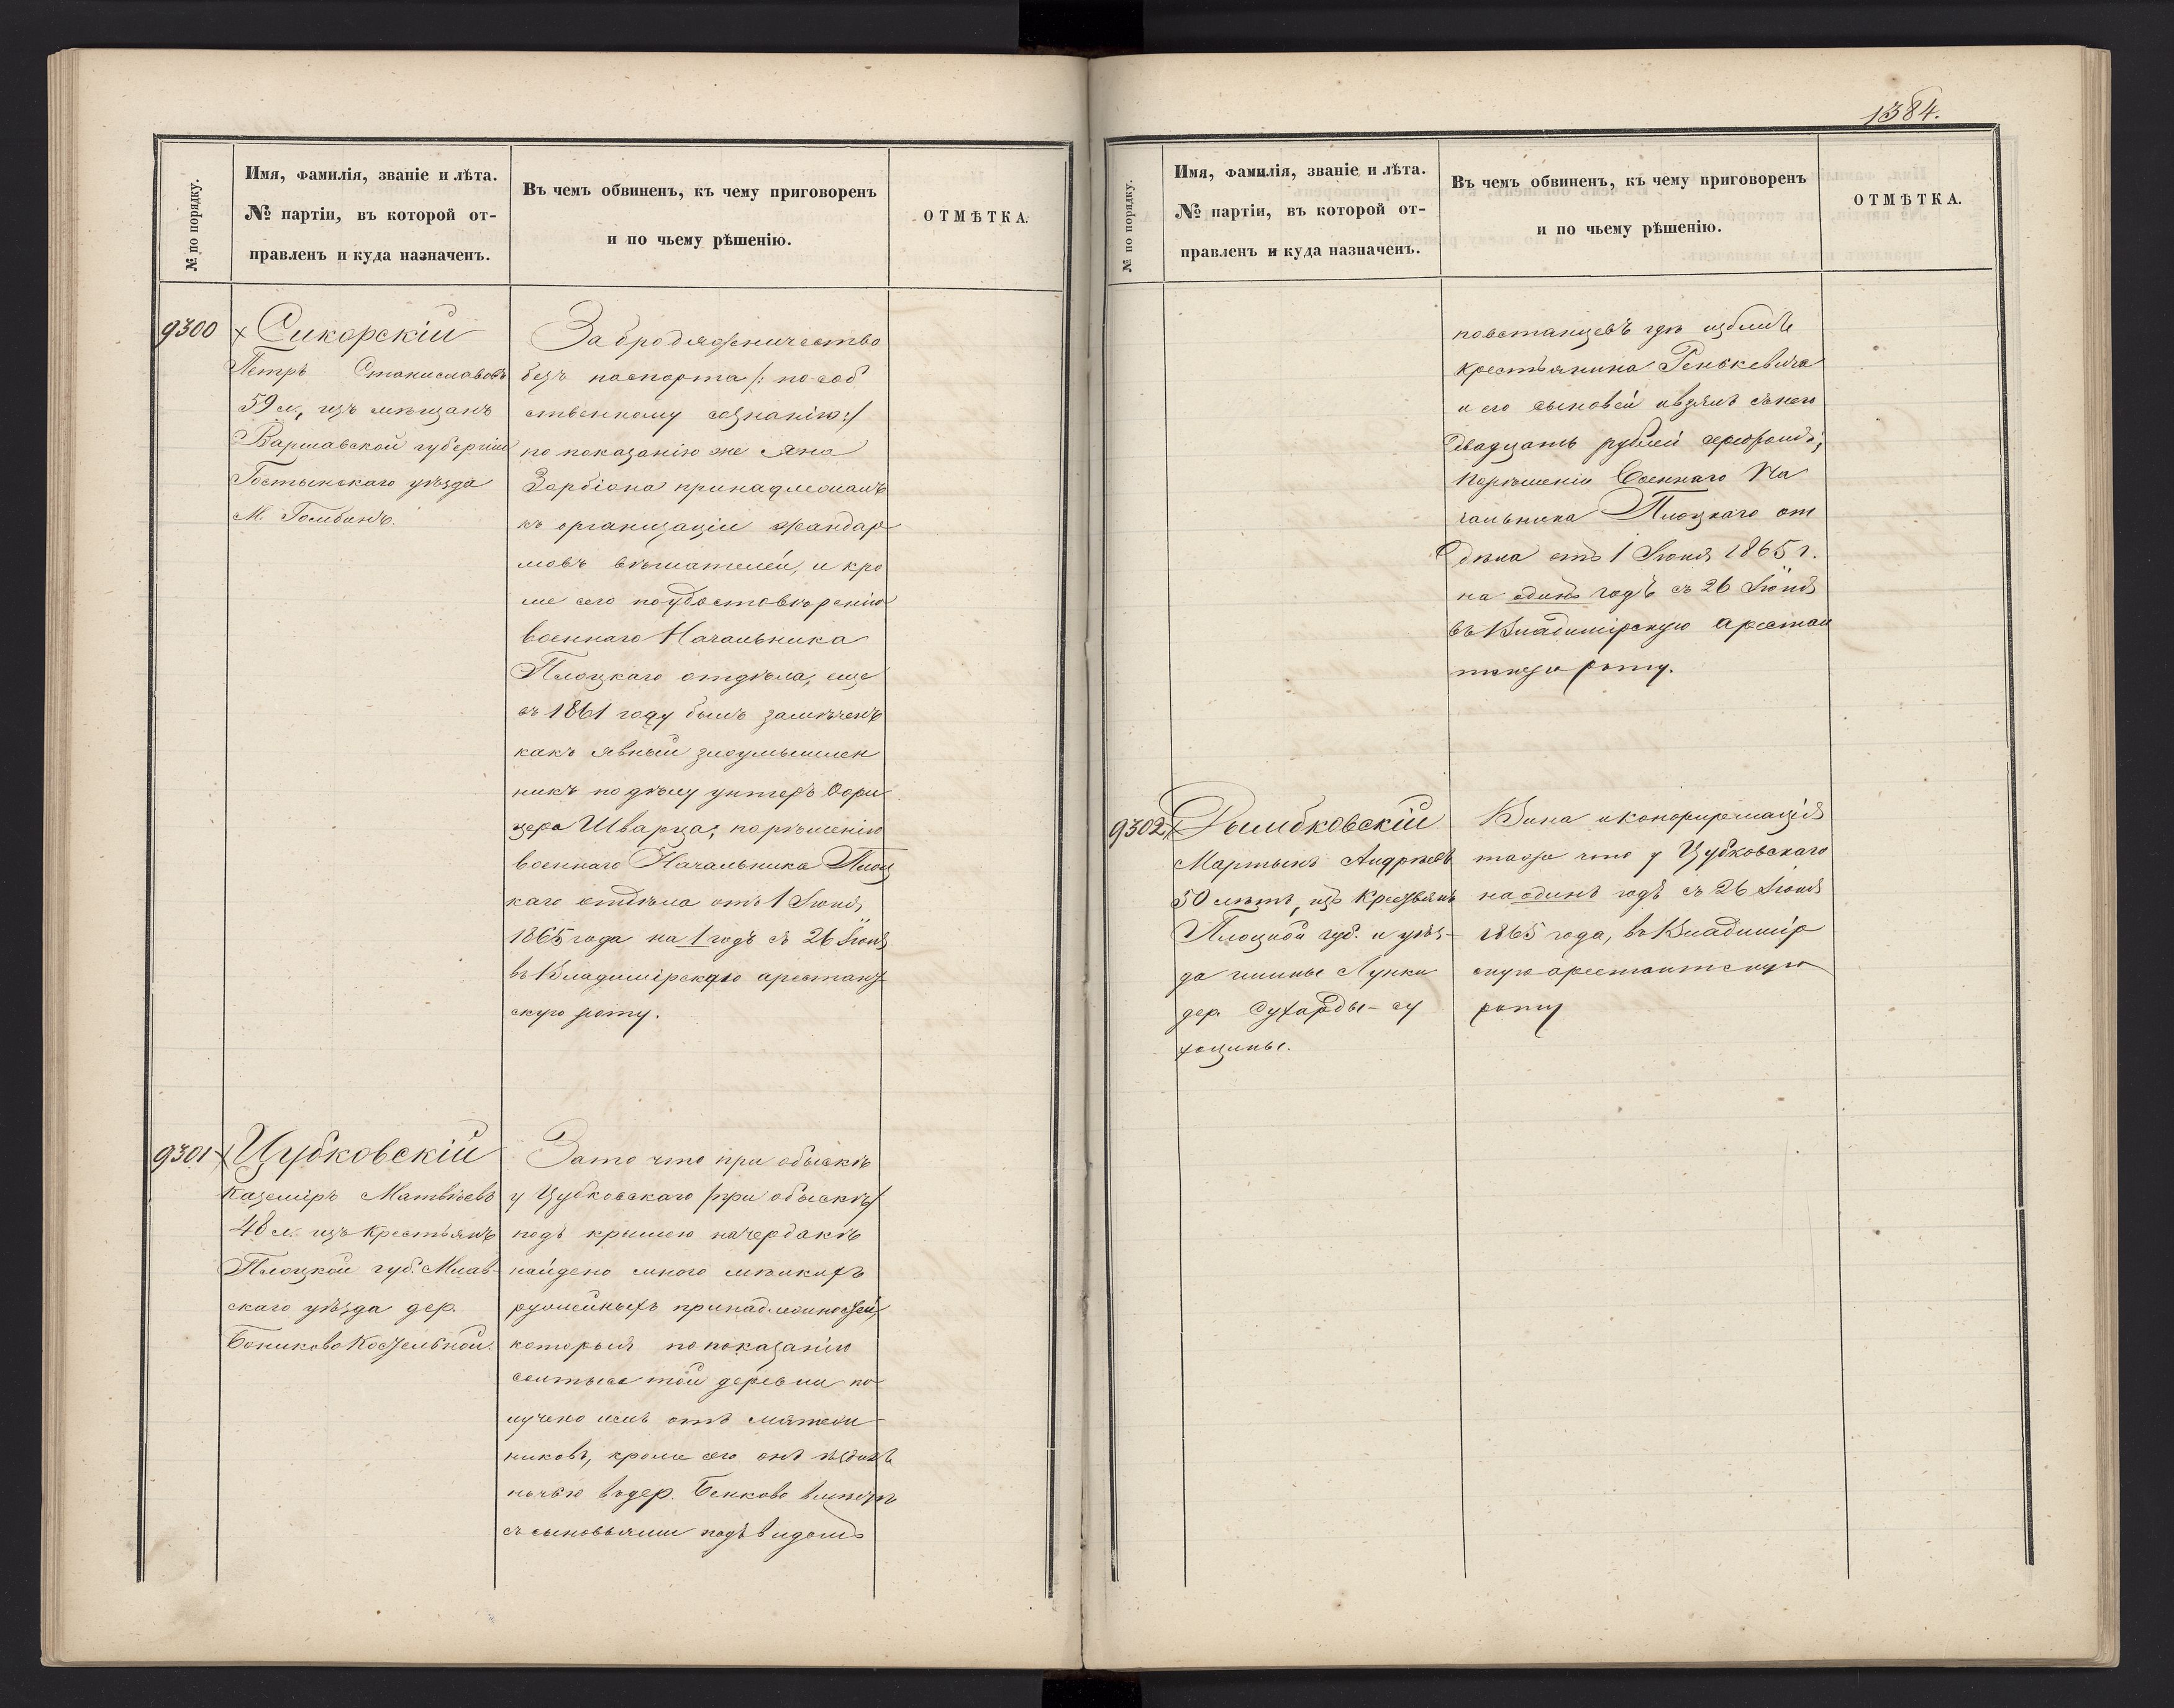 1384.
№ по порядку.
Имя, фамилія, званіе и лѣта.
№ партіи, въ которой от-
правленъ и куда назначенъ.
Въ чемъ обвиненъ, къ чему приговоренъ
и по чьему рѣшенію.
ОТМѢТКА.
9300
× Сикорскій
Петръ Станиславовъ
59 л., изъ мѣщанъ
Варшавской губерніи
Гостынскаго уѣзда
М. Гомбинъ.
За бродяжничество
безъ паспорта /: по соб
ственному сознанію :/
по показанію же Яна
Зарбіона принадлежалъ
къ организаціи жандар
мовъ вѣшателей, и кро
ме сего по удостовѣренію
военнаго Начальника
Плоцкаго отдѣла, еще
въ 1861 году былъ замѣченъ
какъ явный злоумышлен
никъ по дѣлу унтеръ Офи
цера Шварца; по рѣшенію
военнаго Начальника Плоц
каго отдѣла отъ 1 Іюня
1865 года на 1 годъ съ 26 Іюня
въ Владимірскую арестант
скую роту.
9301
× Цубковскій
Каземіръ Матвѣевъ
48 л. изъ крестьянъ
Плоцкой губ. Млав-
скаго уѣзда дер.
Боньково Костельной.
За то что при обыскѣ
у Цубковскаго /при обыскѣ/
подъ крышею на чердакѣ
найдено много мѣлкихъ
ружейныхъ принадлежностей,
которыя по показанію
солтыса той деревни по
лучено имъ отъ мятеж-
никовъ, кроме сего онъ ѣздилъ
ночью въ дер. Бенково вмѣстѣ
съ сыновьями подъ видомъ
№ по порядку.
Имя, фамилія, званіе и лѣта.
№ партіи, въ которой от-
правленъ и куда назначенъ.
Въ чемъ обвиненъ, къ чему приговоренъ
и по чьему рѣшенію.
ОТМѢТКА.
повстанцевъ гдѣ избилъ
крестьянина Генскевича
и его сыновей и взялъ съ него
двадцать рублей
По рѣшенію Военнаго На
чальника Плоцкаго от
дѣла отъ 1 Іюня 1865 г.
на одинъ годъ съ 26 Іюня
въ Владимірскую арестан
тскую роту.
9302
× Рымбковскій
Мартынъ Андреевъ
50 лѣтъ, изъ крестьянъ
Плоцкой губ. и уѣз-
да гмины Лунки
дер. Сухарды-су
хоцины.
Вина и конфирмація
таже что у Цубковскаго
на одинъ годъ съ 26 Іюня
1865 года, въ Владимір
скую арестантскую
роту